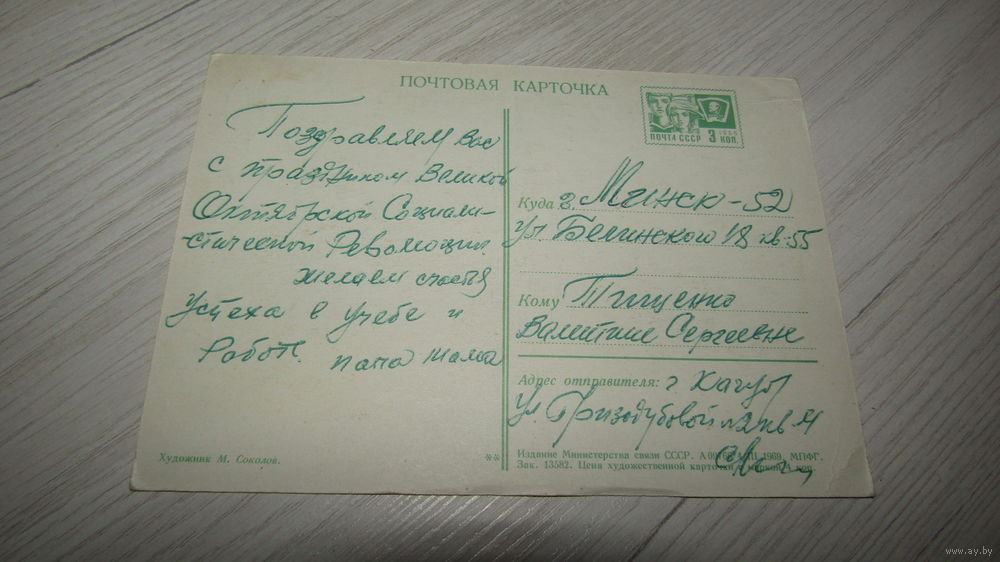 ПОЧТОВАЯ КАРТОЧКА
Поздравляем вас
с праздником Великой
Октябрьской Социали-
стической Революции
желаем счастья
успеха в учебе и
работе. папа мама
Художник М. Соколов.
**
1966
ПОЧТА СССР 3 КОП.
Куда г. Минск-52
ул. Белинского 18 кв-55
Кому Тищенко
Валентине Сергеевне
Адрес отправителя: г. Кагул
ул. Гризодубовой кв 4
Издание Министерства связи СССР. 1969. МПФГ.
Зак. 13582. Цена художественной карточки с маркой 4 коп.
www.ay.by